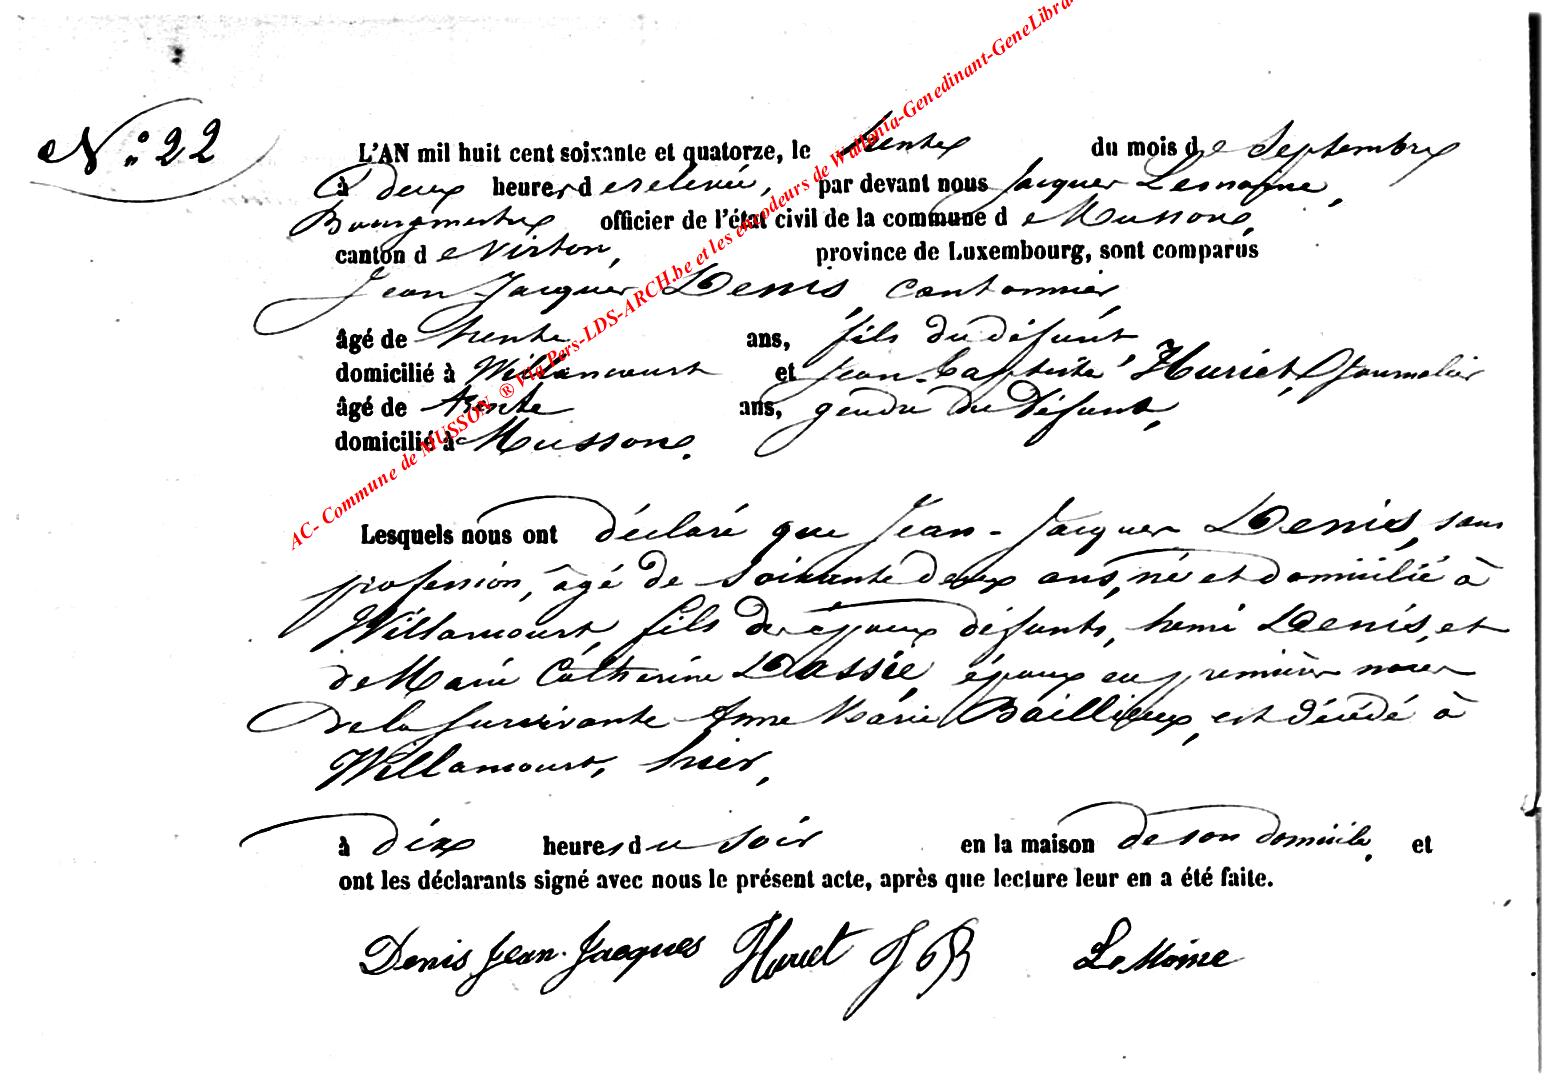 N.º 22
L'AN mil huit cent soixante et quatorze, le trente du mois de Septembre
à deux heures de relevée, par devant nous Jacques Lemoine,
Bourgmestre officier de l'état civil de la commune de Musson,
canton de Virton, province de Luxembourg, sont comparus
Jean-Jacques Denis, cantonnier,
âgé de trente ans, fils du défunt
domicilié à Willancourt et Jean-baptiste Huriet, Journalier
âgé de trente ans, gendre du Défunt,
domicilié à Musson.
Lesquels nous ont déclaré que Jean-Jacques Denis, sans
profession, âgé de soixante deux ans, né et domicilié à
Willancourt, fils des époux défunts, henri Denis, et
de Marie Catherine Dassée, époux en premières noces
de la survivante Anne Marie Baillieux, est décédé à
Willancourt, hier,
à dix heures du soir en la maison de son domicile, et
ont les déclarants signé avec nous le présent acte, après que lecture leur en a été faite.
Denis Jean-Jacques Huriet J B LeMoine
AC- Commune de MUSSON ® Via Pers-LDS-ARCH.be et les encodeurs de Wallonia-Genedinant-GeneLibra